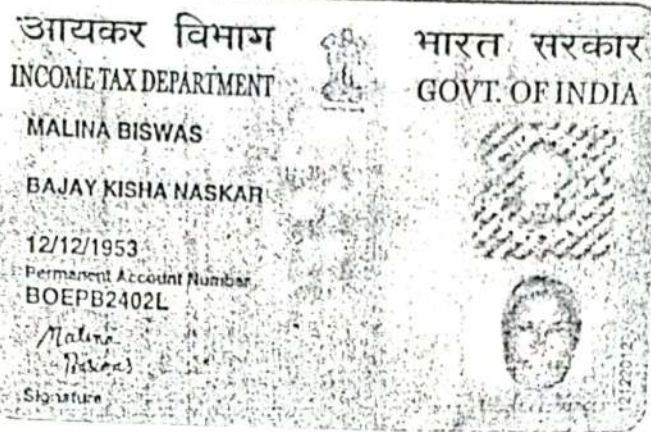 आयकर विभाग
भारत सरकार
INCOME TAX DEPARTMENT
GOVT. OF INDIA
MALINA BISWAS
BAJAY KISHA NASKAR
12/12/1953
Permanent Account Number
BOEPB2402L
Malina
Biswas
Signature